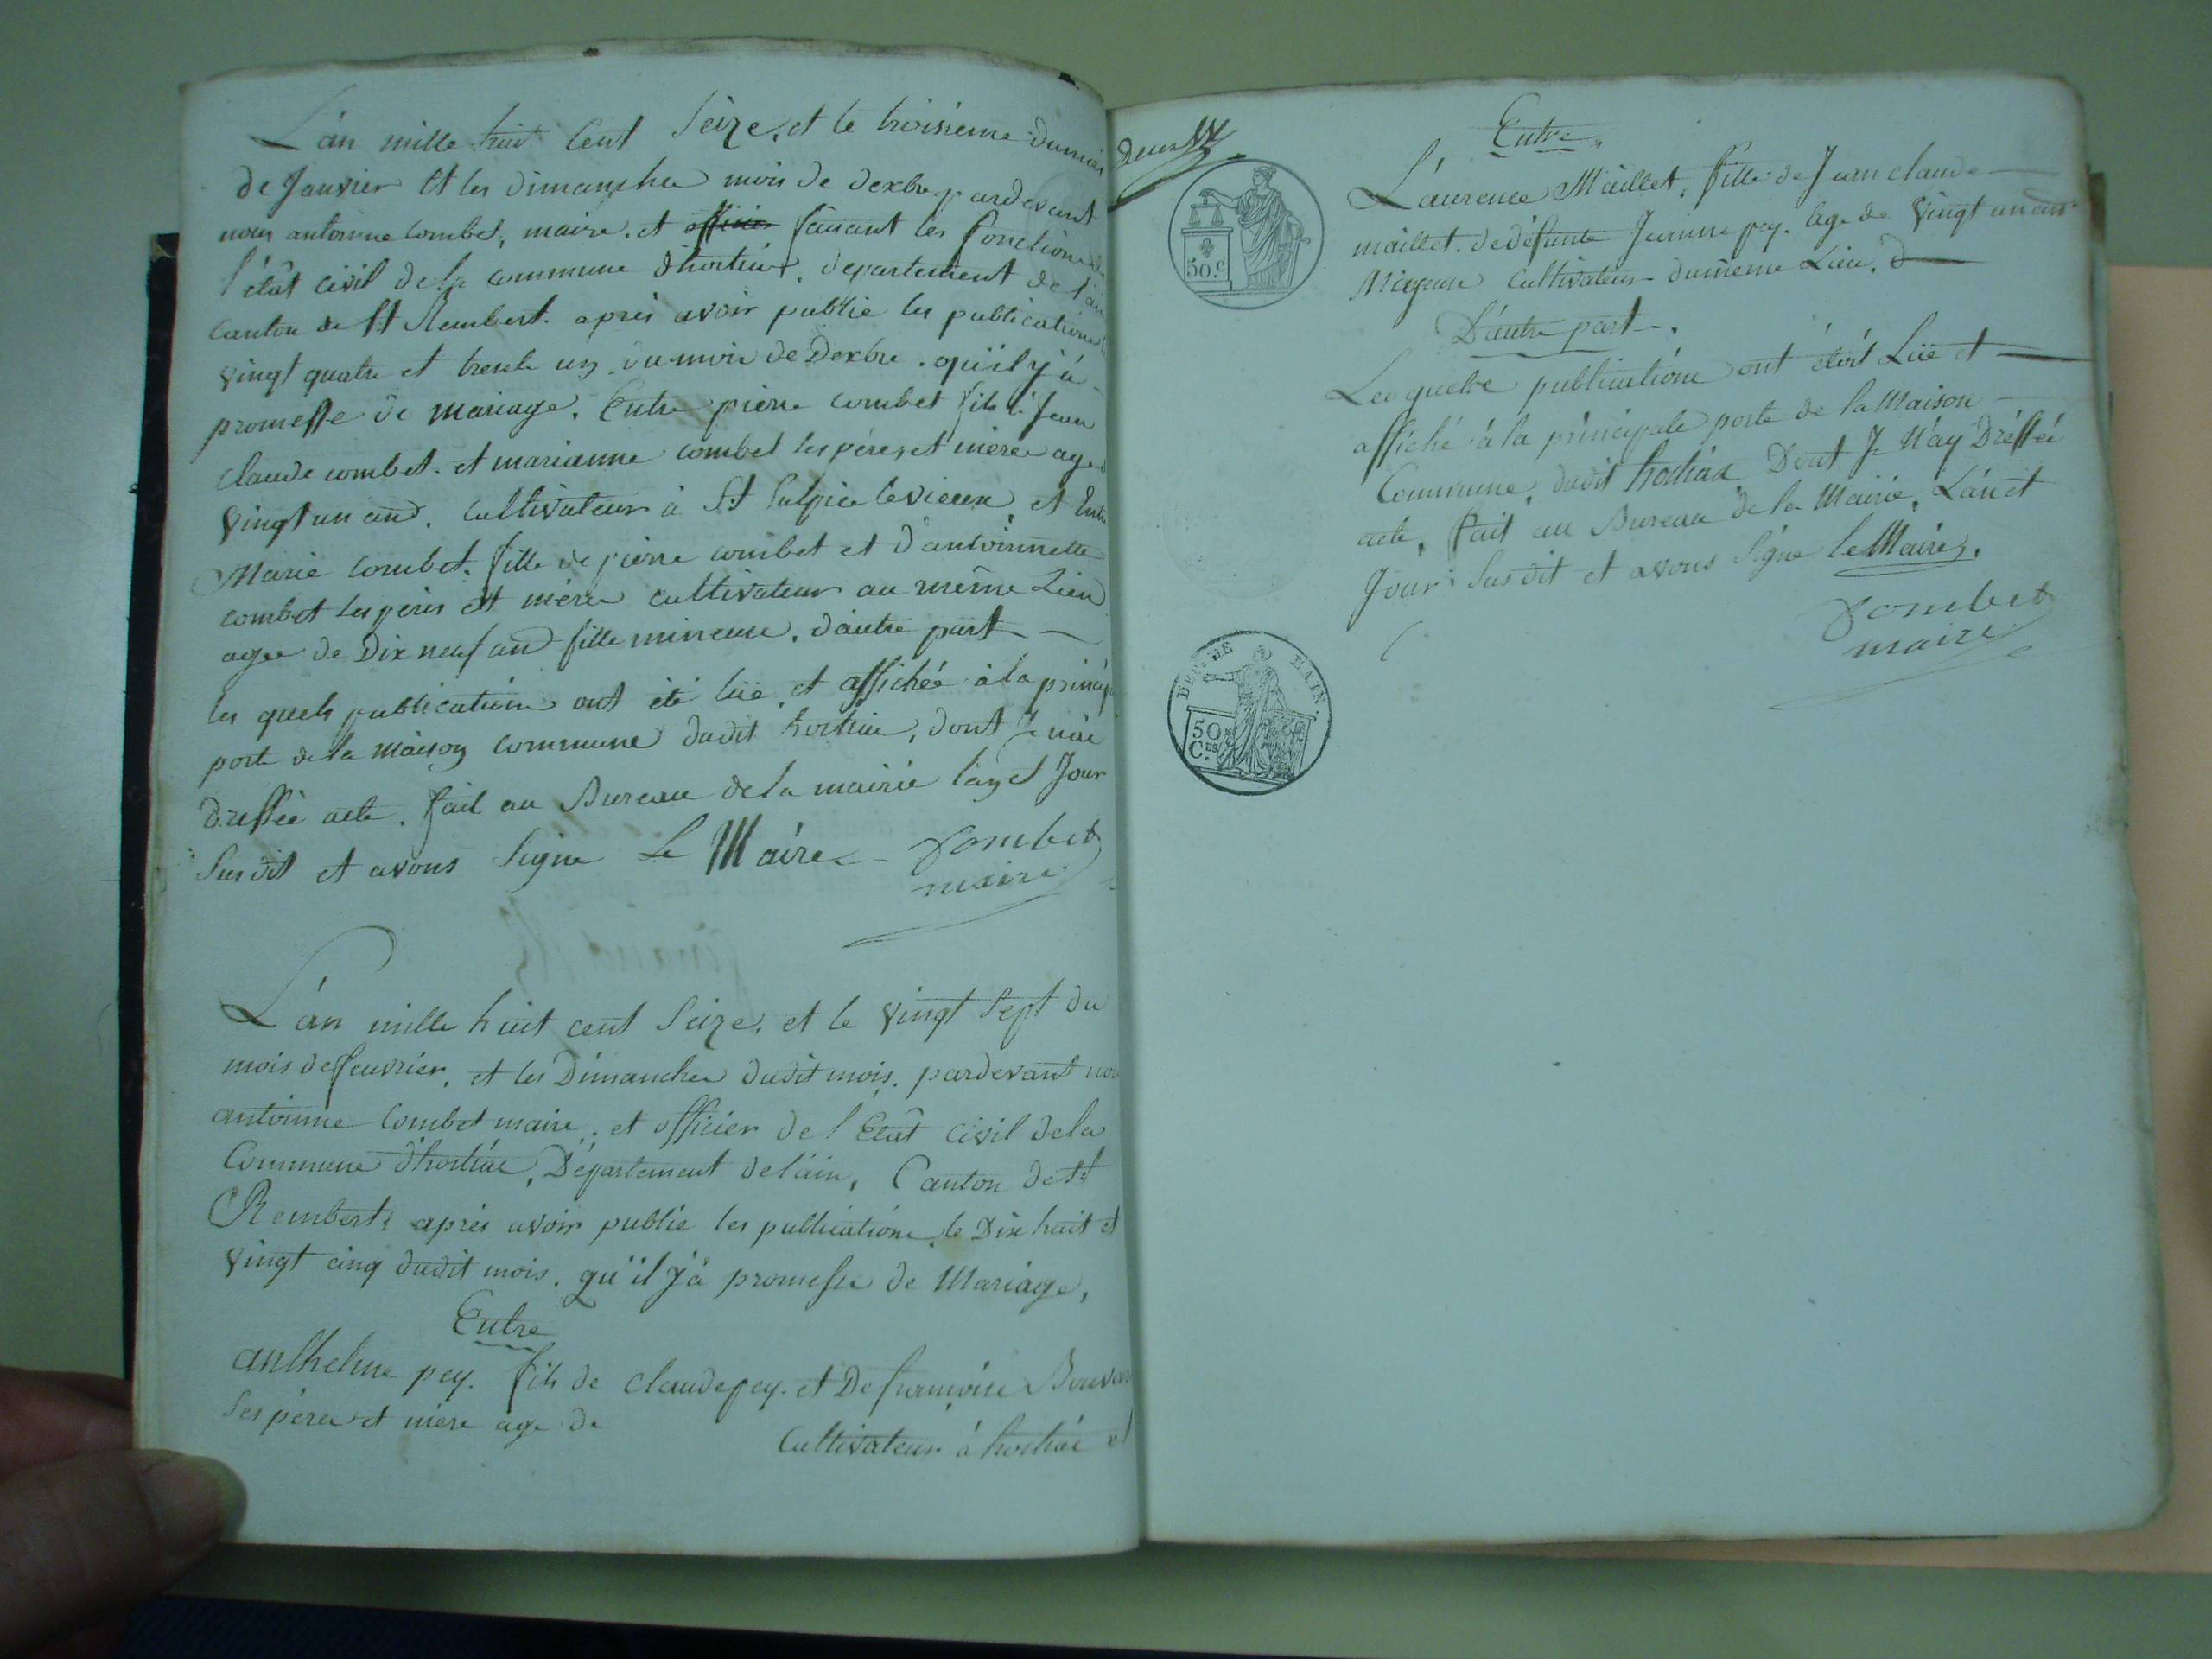 L'an mille huit Cent Seize, et le troisieme du mois
de Janvier Et les dimanches mois de dexbre. pardevant
nous antoinne Combet, maire, et officier faisant les fonctions de
l'état civil de la commune d'hostiaz, departement de l'ain
Canton de St Rembert. après avoir publie les publications
Vingt quatre et trente un du mois de Dexbre. qu'il y à
promesse de mariage. Entre pierre combet fils de Jean
Claude combet. et marianne combet les péres et mères agé
Vingt un and. cultivateur à St Sulpice le vieux, et Entre
Marie Combet. fille de pierre combet et d'antoinnette
combet les péres et mères cultivateur au même Lieu
agee de Dix neuf and fille mineure. d'autre part
les quels publications ont été lüe, et affichée à la princip
porte de la maison commune dudit hostiaz, dont Je n'ai
dressée acte. fait au Bureau de la mairie l'an et Jour
Sus dit et avons Signe Le Maire
Combet
maire
L'an mille huit cent Seize, et le Vingt Sept du
mois de feuvrier, et les Dimanches dudit mois. pardevant nous
antoinne Combet maire, et officier de l'Etat Civil de la
Commune d'hostiaz, Département de l'ain, Canton de St
Rembert. après avoir publie les publications, le Dix huit et
Vingt cinq dudit mois. qu'il y à promesse de Mariage,
Entre
anthelme pey. fils de Claude pey. et De françoise Bouvar
Ses péres et mère age de
Cultivateur à hostiaz et
Deux
50.C
Entre,
Laurence Maillet, fille de Jean claude
maillet. de défunte Jeanne pey. age de Vingt un ans
Migeure Cultivateur du même Lieu. d
D'autre part.
Les quelles publications ont étoit Lüe et
affiché à la principale porte de la Maison
Commune, dudit hostiaz Dont Je N'ay Dréssée
acte, fait au Bureau de la Mairie, L'an et
Jour Sus dit et avons Signe le Maire,
Combet
maire
DEPT DE L'AIN.
50
CES